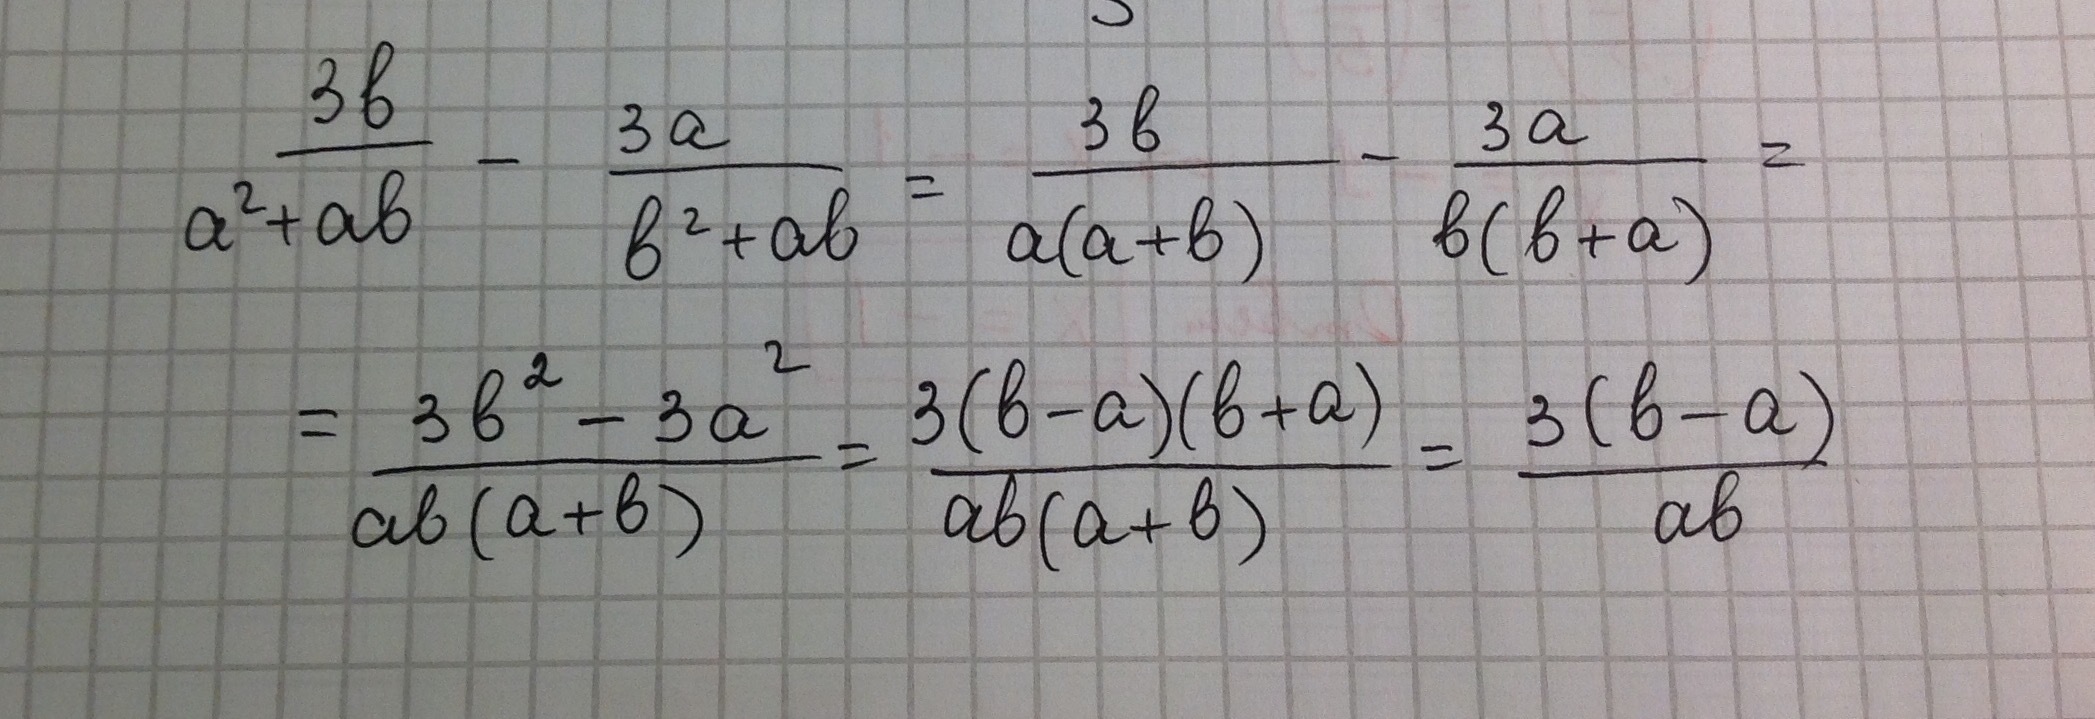 3b/(a²+ab) - 3a/(b²+ab) = 3b/(a(a+b)) - 3a/(b(b+a)) =
= (3b²-3a²)/(ab(a+b)) = (3(b-a)(b+a))/(ab(a+b)) = (3(b-a))/(ab)